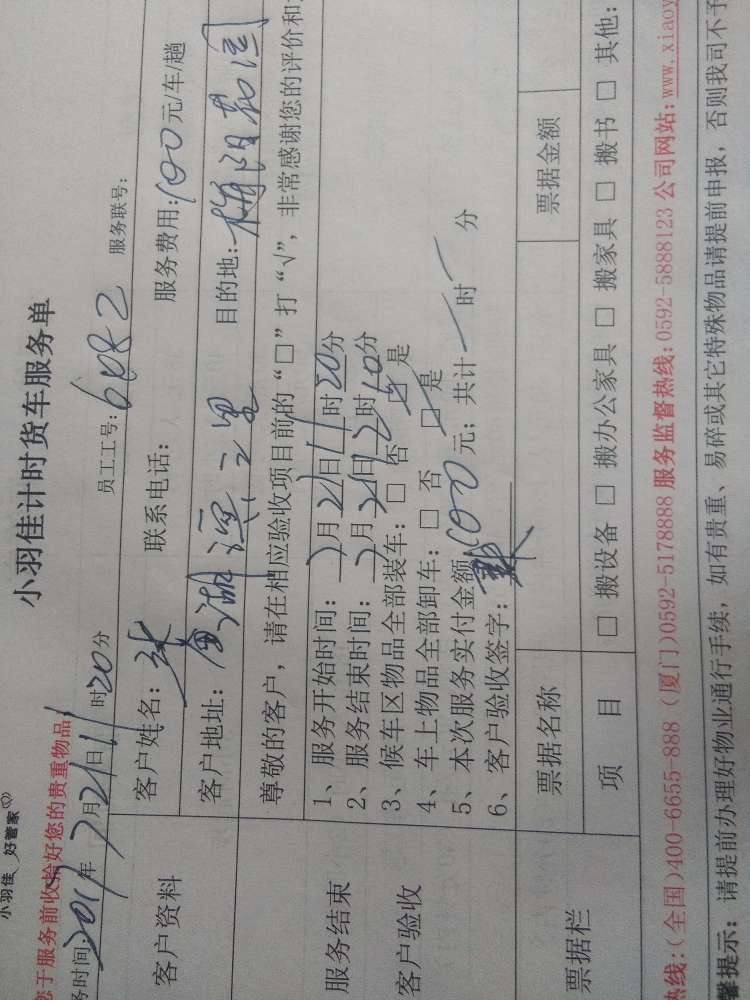 小羽佳 好管家
小羽佳计时货车服务单
您于服务前收拾好您的贵重物品!
务时间:2019年7月21日11时20分 员工工号: 服务联号:
客户资料
客户姓名: 联系电话: 服务费用:100元/车/趟
客户地址: 湖滨 里 目的地:
尊敬的客户,请在相应验收项目前的“□”打“√”,非常感谢您的评价和
服务结束
客户验收
1、服务开始时间:7月21日11时20分
2、服务结束时间:7月21日12时10分
3、候车区物品全部装车:□否 □是
4、车上物品全部卸车:□否 □是
5、本次服务实付金额100元;共计 时 分
6、客户验收签字:
票据栏
票据名称 票据金额
项 目 □搬设备 □搬办公家具 □搬家具 □搬书 □其他:
热线:(全国)400-6655-888 (厦门)0592-5178888 服务监督热线:0592-5888123 公司网站:www.xiaoy
馨提示:请提前办理好物业通行手续,如有贵重、易碎或其它特殊物品请提前申报,否则我司不予